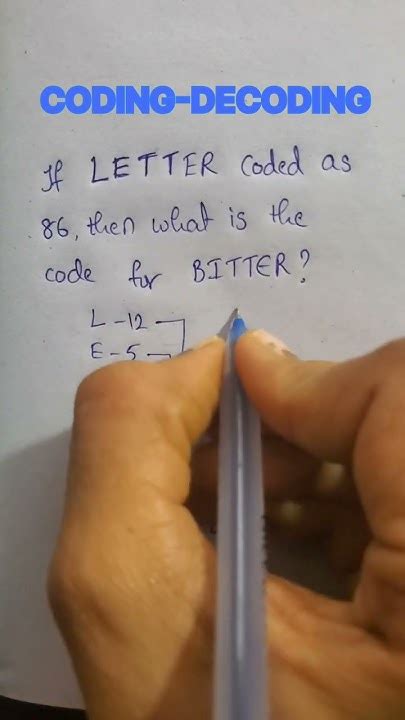 CODING-DECODING
If LETTER Coded as
86, then what is the
code for BITTER?
L - 12
E - 5